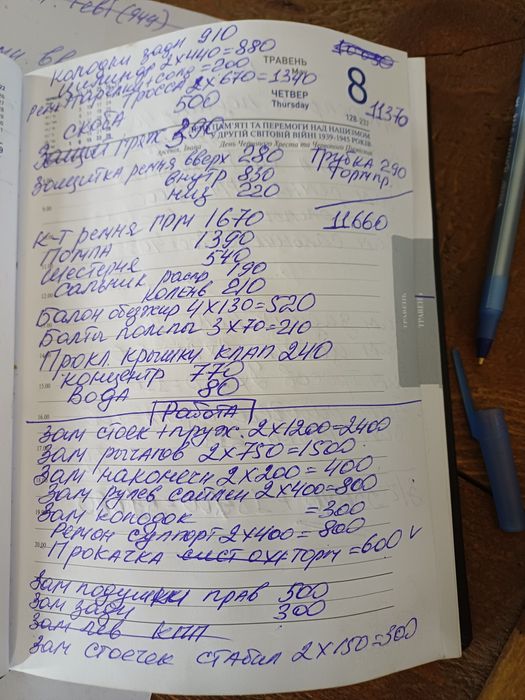 колодки задн 910
Цилиндр 2×440=880
Рем. Тормозн супп=200
Тросса 2×670=1340
Скоба 500
ТРАВЕНЬ
May
8
ЧЕТВЕР
Thursday
128-237
11370
ДЕНЬ ПАМ'ЯТІ ТА ПЕРЕМОГИ НАД НАЦИЗМОМ
У ДРУГІЙ СВІТОВІЙ ВІЙНІ 1939-1945 РОКІВ
Защитка ремня вверх 280
внутр 830
низ 220
Трубка 290
торм пр.
11660
К-т ремня ПРМ 1670
Помпа 1390
Шестерня 540
Сальник распр 190
колень 210
Балон обезжир 4×130=520
Болты помпы 3×70=210
Прокл. крышки клап 240
концентр 770
Вода 80
Работа
Зам стоек + пруж. 2×1200=2400
Зам рычагов 2×750=1500
Зам наконечн 2×200=400
Зам рулев 2×400=800
Зам колодок =300
Ремон суппорт 2×400=800
Прокачка сист торм=600 V
Зам подушки прав 500
Зам задн 300
Зам лев КПП
Зам стоечек стабил 2×150=300
ТРАВЕНЬ